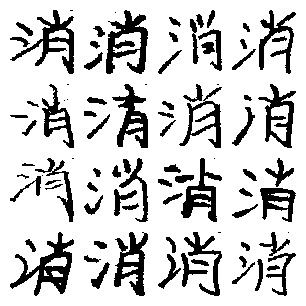 消消消消
消清消消
消消消消
消消消消